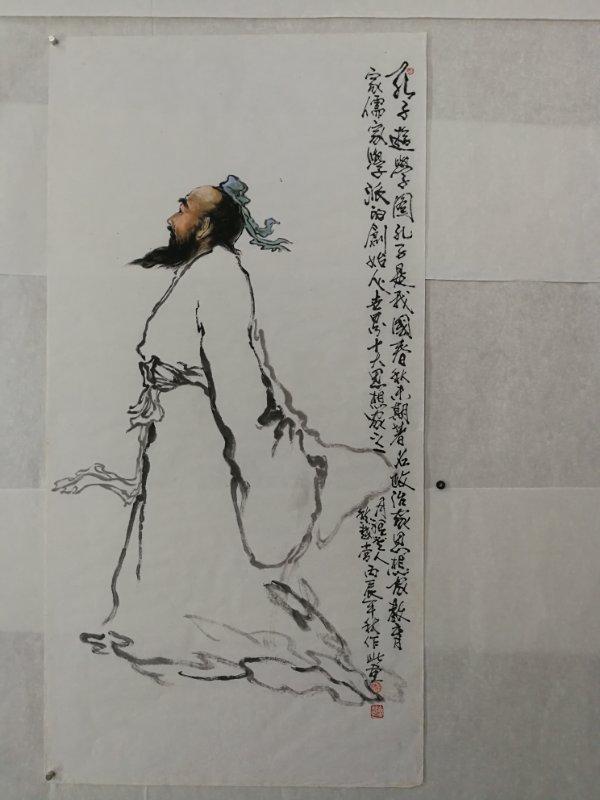 孔子遊學圖孔子是我國春秋末期著名政治家思想家教育
家儒家學派的創始人世界十大思想家之一
丙辰年秋作此畫